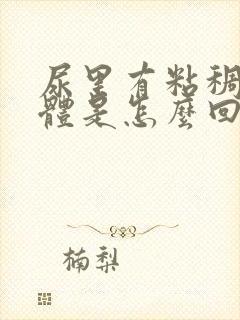 尿里有粘稠
體是怎麼回
楠梨